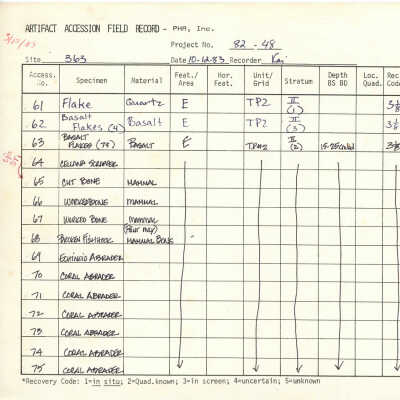 ARTIFACT ACCESSION FIELD RECORD - PHR, Inc.
Project No. 82-48
Site 363 Date 10-12-83 Recorder
Access. No. Specimen Material Feat./Area Hor. Feat. Unit/Grid Stratum Depth BS BD Loc. Quad. Rec Cod
61 Flake Quartz E TP2 II (1)
62 Basalt Flakes (4) Basalt E TP2 II (3)
63 BASALT FLAKES (78) BASALT E TP#2 II (2)
64 SCRAPER
65 CUT BONE MAMMAL
66 WORKED BONE MAMMAL
67 WORKED BONE MAMMAL
68 BROKEN FISHHOOK MAMMAL BONE
69 ABRADER
70 CORAL ABRADER
71 CORAL ABRADER
72 CORAL ABRADER
73 CORAL ABRADER
74 CORAL ABRADER
75 CORAL ABRADER
*Recovery Code: 1=in situ; 2=Quad.known; 3=in screen; 4=uncertain; 5=unknown